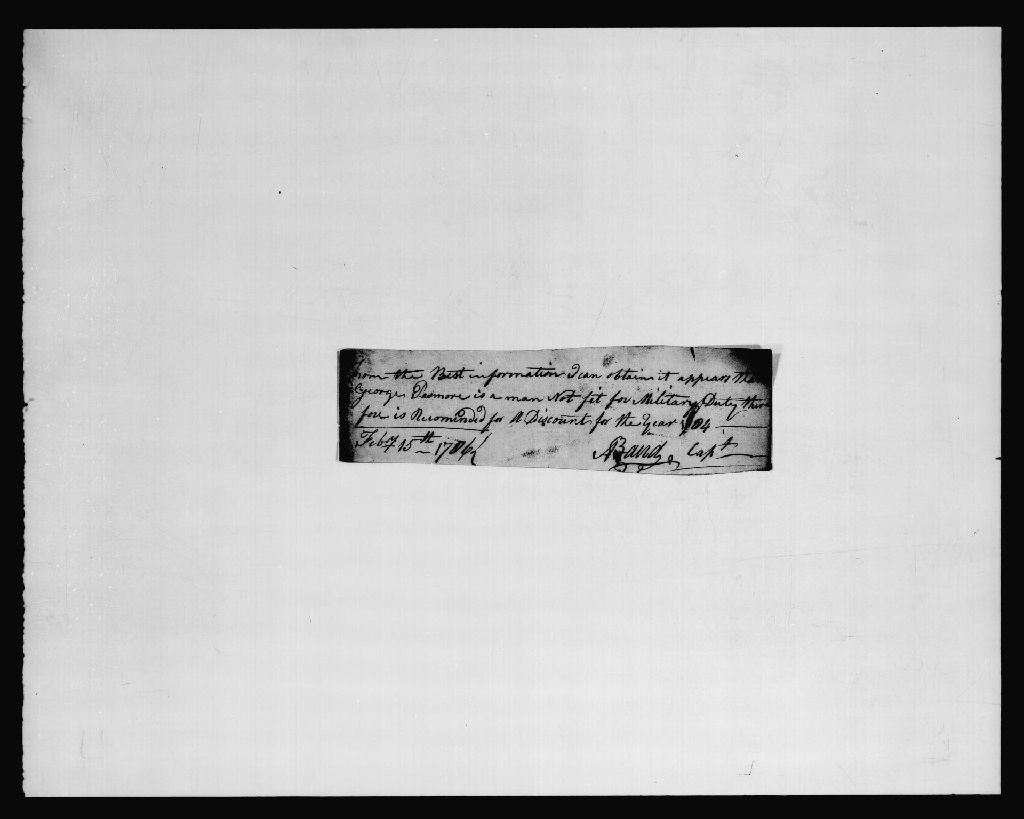 From the Best information I can obtain it appears that
George Pasmore is a man Not fit for Military Duty there
fore is Recomended for A Discount for the Year 104
Feby 15th 1706
Capt